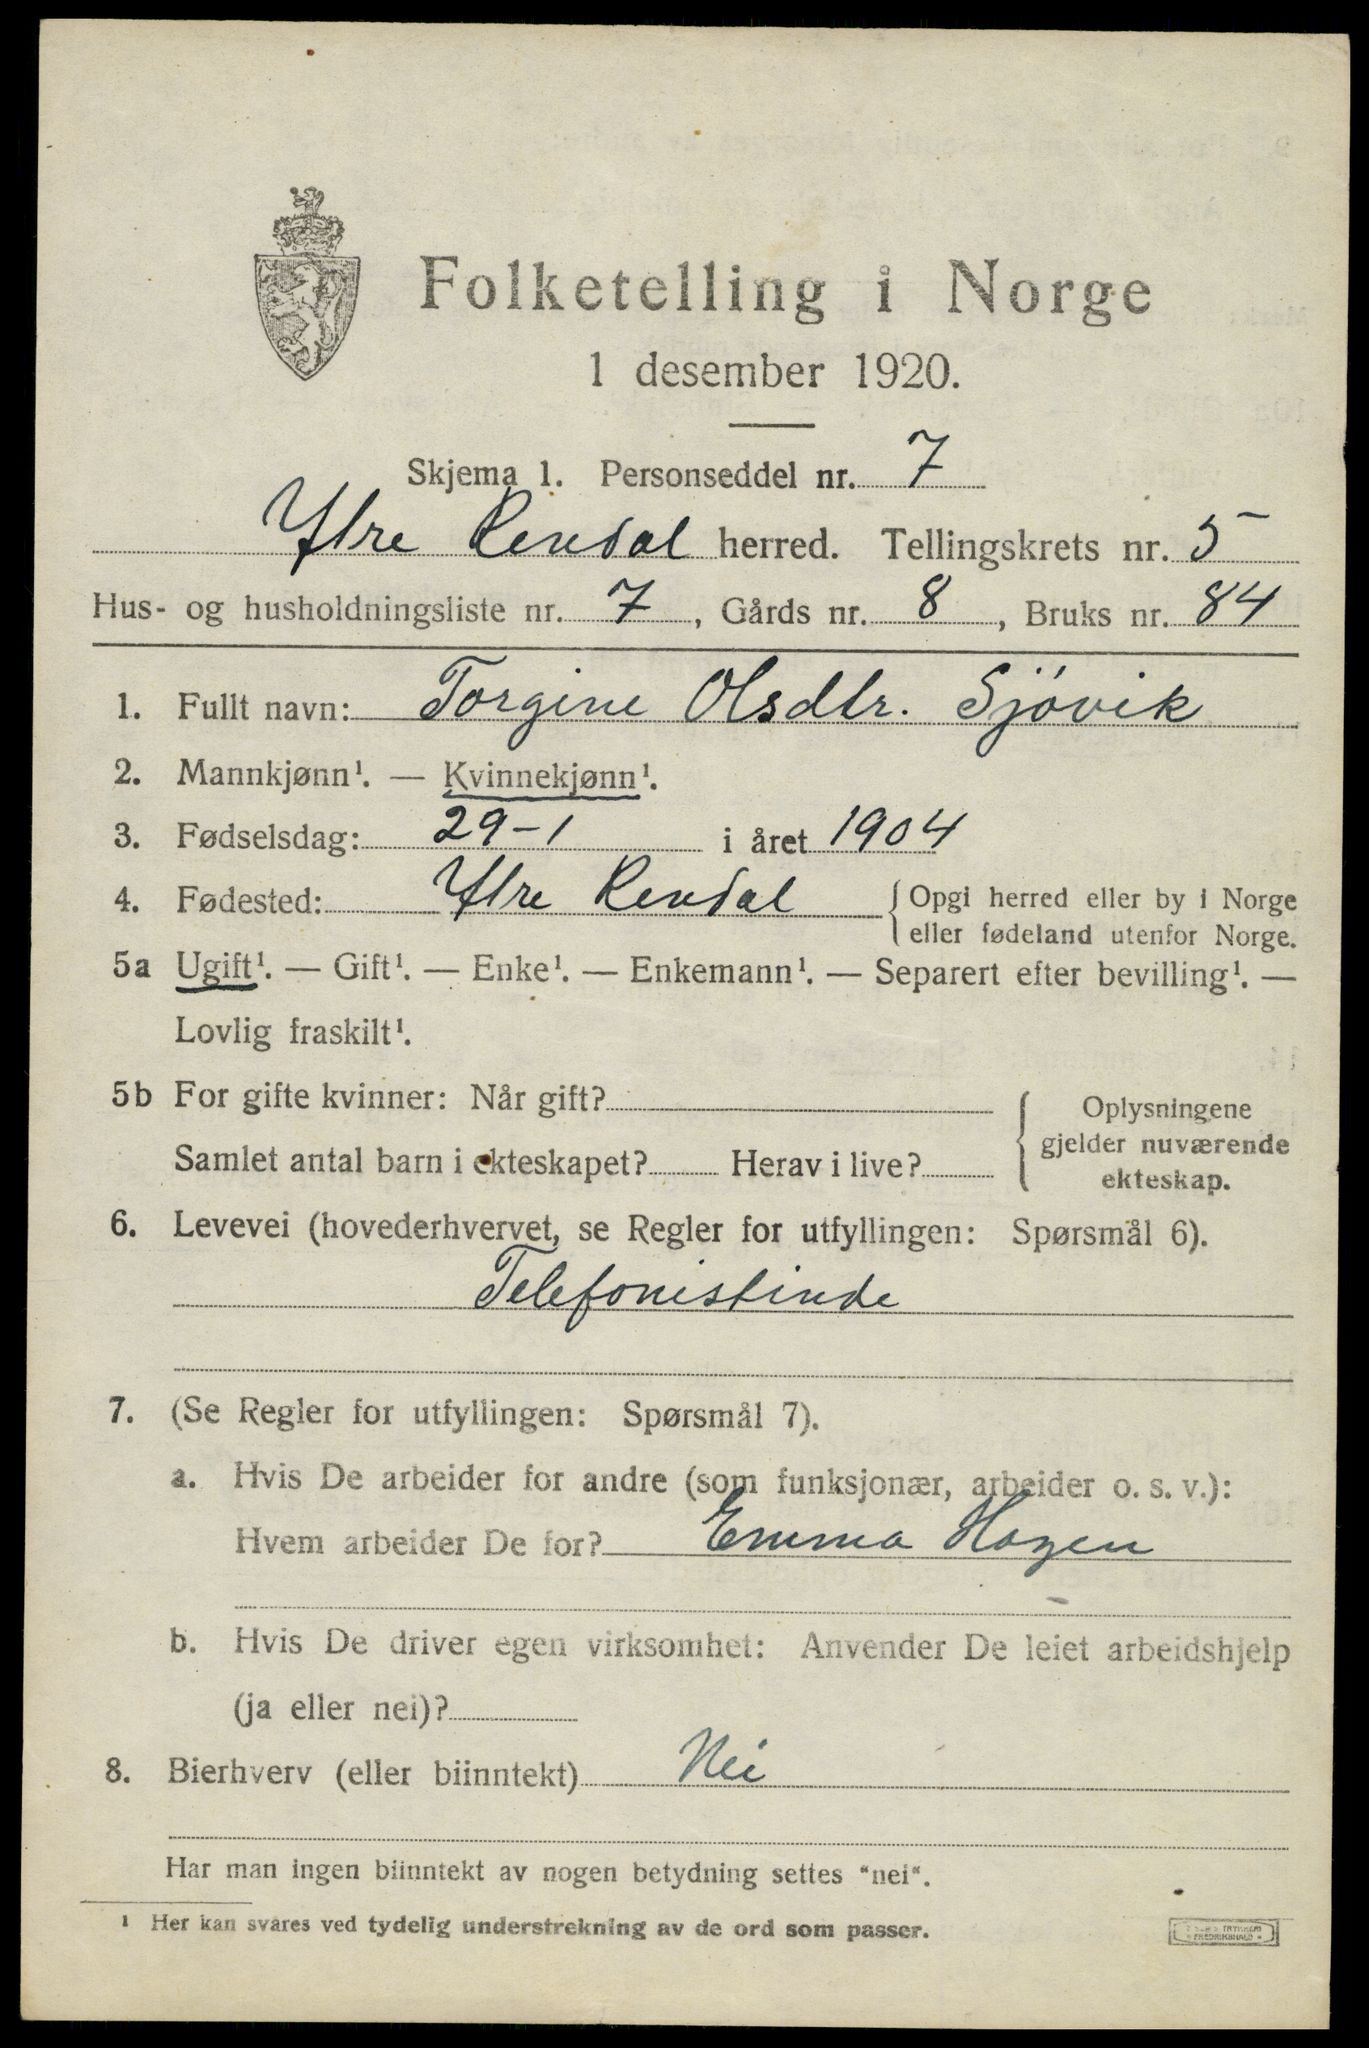 Folketelling i Norge
1 desember 1920.
Skjema 1. Personseddel nr. 7
Ytre Rendal herred. Tellingskrets nr. 5
Hus- og husholdningsliste nr. 7, Gårds nr. 8, Bruks nr. 84
1. Fullt navn: Torgine Olsdtr. Sjövik
2. Mannkjønn¹. — Kvinnekjønn¹.
3. Fødselsdag: 29-1 i året 1904
4. Fødested: Ytre Rendal { Opgi herred eller by i Norge
eller fødeland utenfor Norge.
5a Ugift¹. — Gift¹. — Enke¹. — Enkemann¹. — Separert efter bevilling¹. —
Lovlig fraskilt¹.
5b For gifte kvinner: Når gift?
Samlet antal barn i ekteskapet? Herav i live?
{ Oplysningene
gjelder nuværende
ekteskap.
6. Levevei (hovederhvervet, se Regler for utfyllingen: Spørsmål 6).
Telefonistinde
7. (Se Regler for utfyllingen: Spørsmål 7).
a. Hvis De arbeider for andre (som funksjonær, arbeider o. s. v.):
Hvem arbeider De for? Emma Hagen
b. Hvis De driver egen virksomhet: Anvender De leiet arbeidshjelp
(ja eller nei)?
8. Bierhverv (eller biinntekt) Nei
Har man ingen biinntekt av nogen betydning settes "nei".
¹ Her kan svares ved tydelig understrekning av de ord som passer.